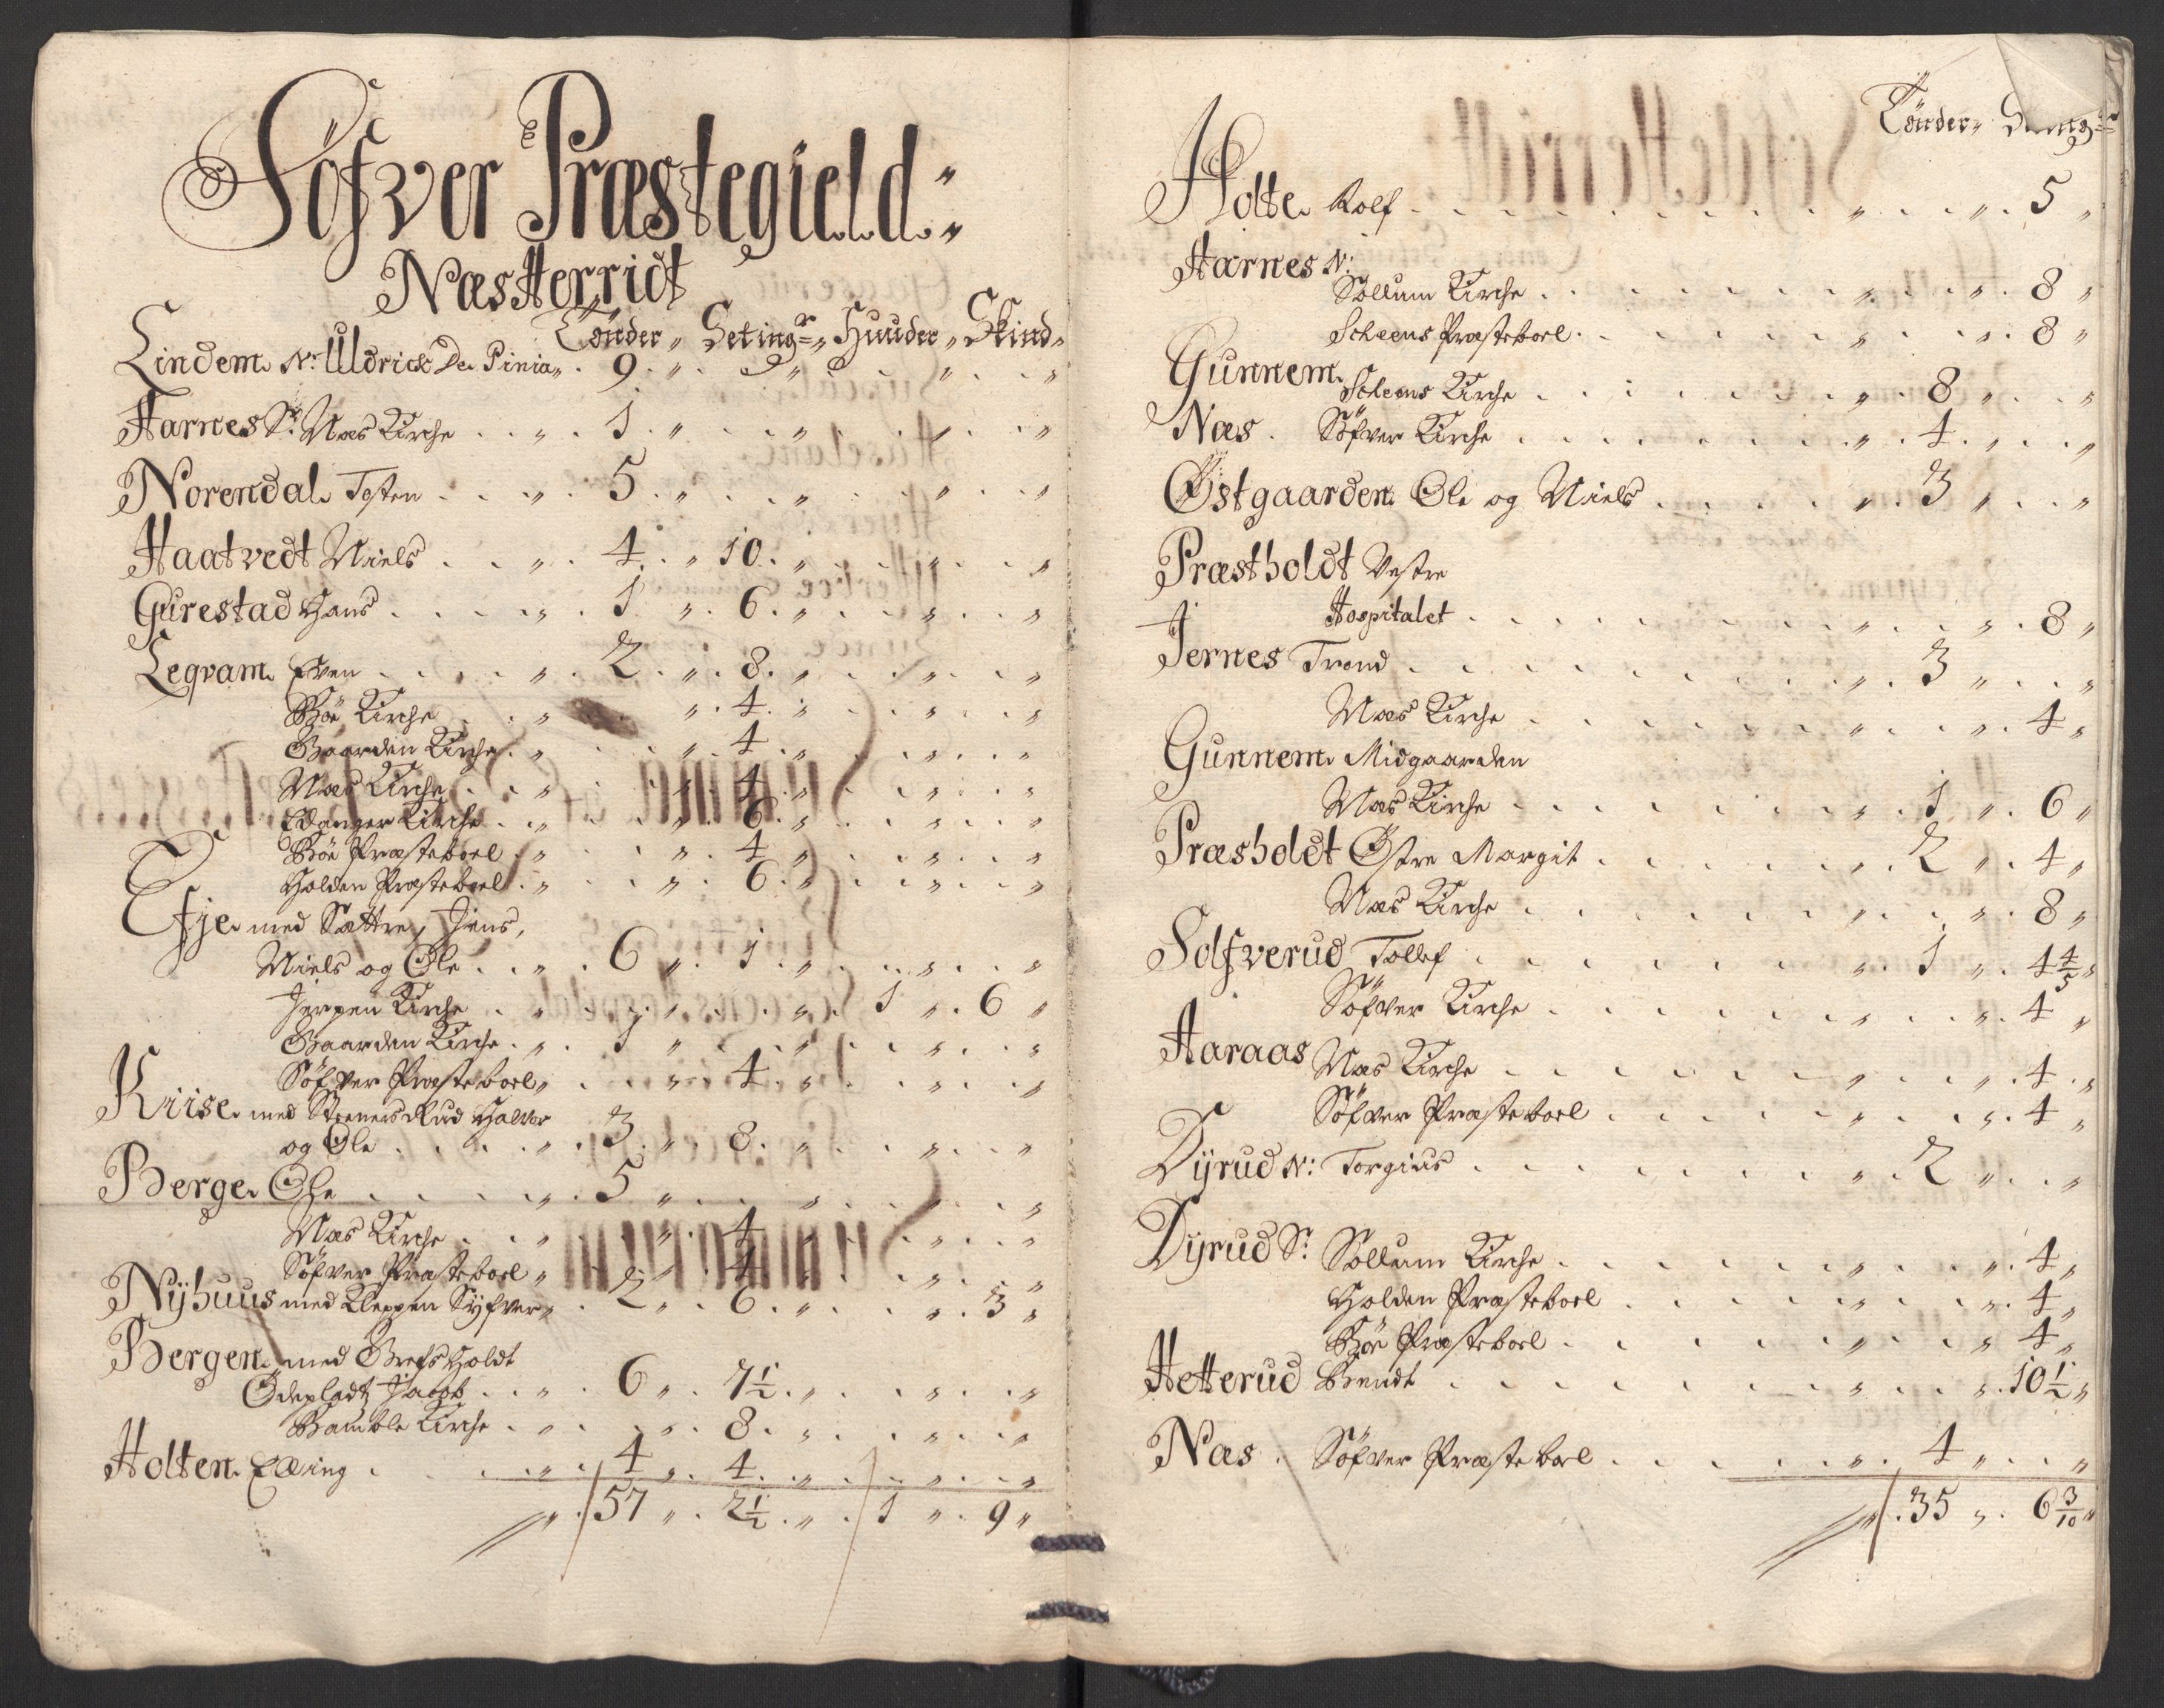 Söfver Præstegield
Næs Herridt
Tönder „ Seting „ Huuder „ Skind
Lindem N: Uldrich De Pinia „ 9 „ „ „
Aarnes S: Næs Kirche „ 1 „ „ „ „
Norendal Tosten „ 5 „ „ „ „
Haatvedt Niels „ 4 „ 10 „ „ „
Gurestad Hans „ 1 „ 6 „ „ „
Legvam Even „ 2 „ 8 „ „ „
Böe Kirche „ „ 4 „ „ „
Gaarden Kirche „ „ 4 „ „ „
Næs Kirche „ „ 4 „ „ „
Edanger Kirche „ „ 6 „ „ „
Böe Præsteboel „ „ 4 „ „ „
Holden Præsteboel „ „ 6 „ „ „
Efje med Sættre, Jens,
Niels og Ole „ 6 „ 1 „ „ „
Jerpen Kirche „ „ „ 1 „ 6 „
Gaarden Kirche „ 1 „ „ „ „
Söfver Præsteboel „ „ 4 „ „ „
Kiise med Steenersrud Halvor
og Ole „ 3 „ 8 „ „ „
Berge Ole „ 5 „ „ „ „
Næs Kirche „ „ 4 „ „ „
Söfver Præsteboel „ „ 4 „ „ „
Nÿhuus med Kleppen Syfver „ 2 „ 6 „ „ 3 „
Bergen med Grefs Holdt
Ödepladtz Jacob „ 6 „ 7½ „ „ „
Bamble Kirche „ „ 8 „ „ „
Holten Elling „ 4 „ 4 „ „ „
„ 57 „ 2½ „ 1 „ 9 „
Tönder „
Holte Rolf „ „ 5 „
Aarnes N:
Sollum Kirche „ „ 8 „
Scheens Præsteboel „ „ 8 „
Gunnem
Scheens Kirche „ 8 „ „
Næs Söfver Kirche „ 4 „ „
Østgaarden Ole og Niels „ 3 „ „
Præstholdt Vestre
Hospitalet „ „ 8 „
Jernes Trond „ 3 „ „
Næs Kirche „ „ 4 „
Gunnem Midgaarden
Næs Kirche „ 1 „ 6 „
Præsholdt Østre Margit „ 2 „ 4 „
Næs Kirche „ „ 8 „
Solfverud Tollef „ 1 „ 4 4/5 „
Söfver Kirche „ „ 4 „
Aaraas Næs Kirche „ „ 4 „
Söfver Præsteboel „ „ 4 „
Dÿrud N: Torgius „ 2 „ „
Dÿrud S: Sollum Kirche „ „ 4 „
Holden Præsteboel „ „ 4 „
Böe Præsteboel „ „ 4 „
Hetterud Bendt „ „ 10½ „
Næs Söfver Præsteboel „ 4 „ „
„ 35 „ 6 3/10 „